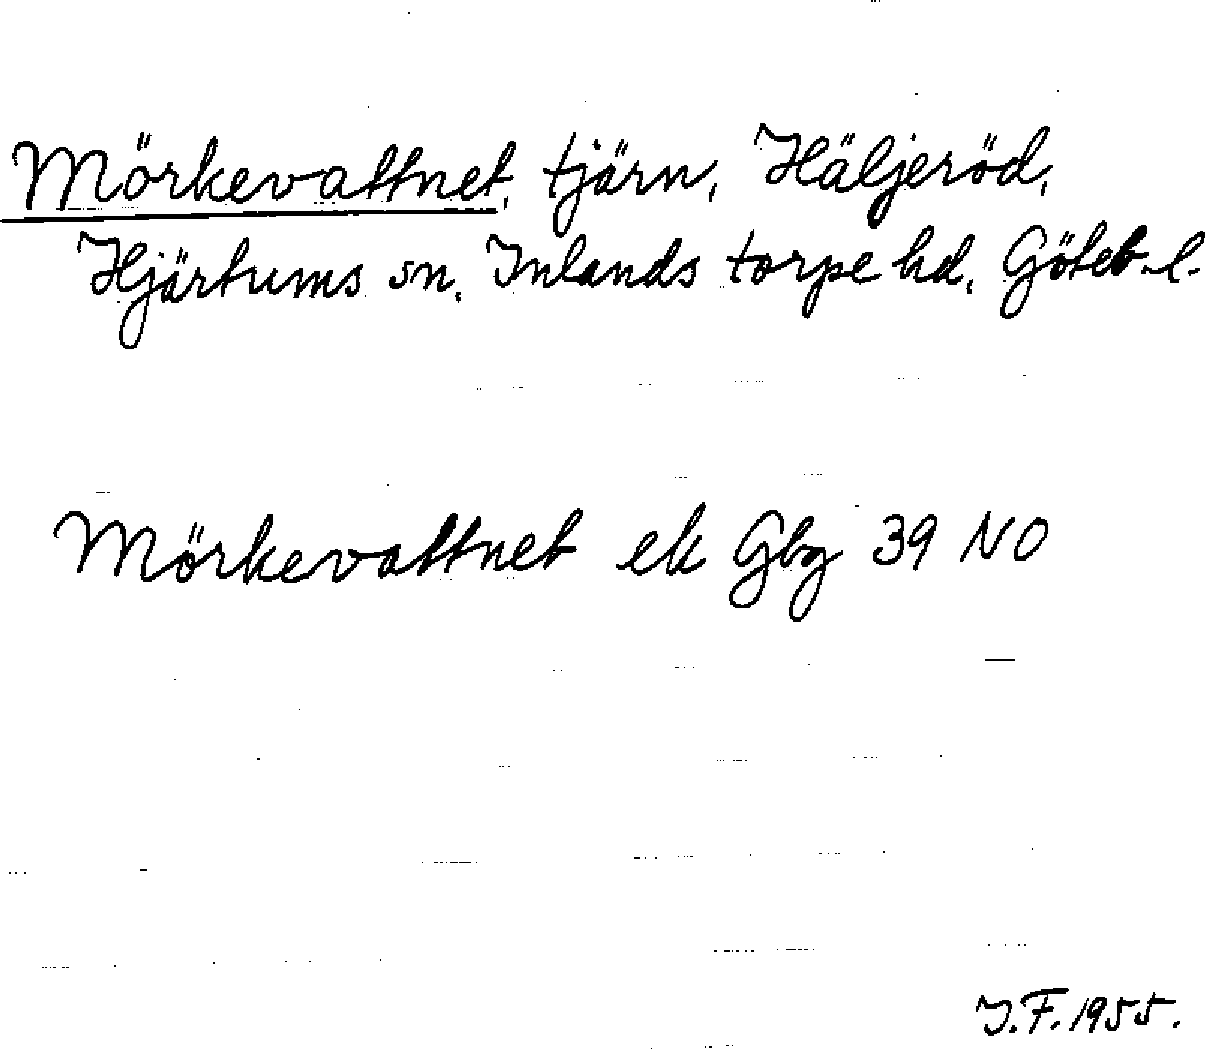 Mörkevattnet, tjärn, Häljeröd,
Hjärtums sn, Inlands torpe hd, Göteb. l.
Mörkevattnet ek Gbg 39 NO
I.F. 1955.